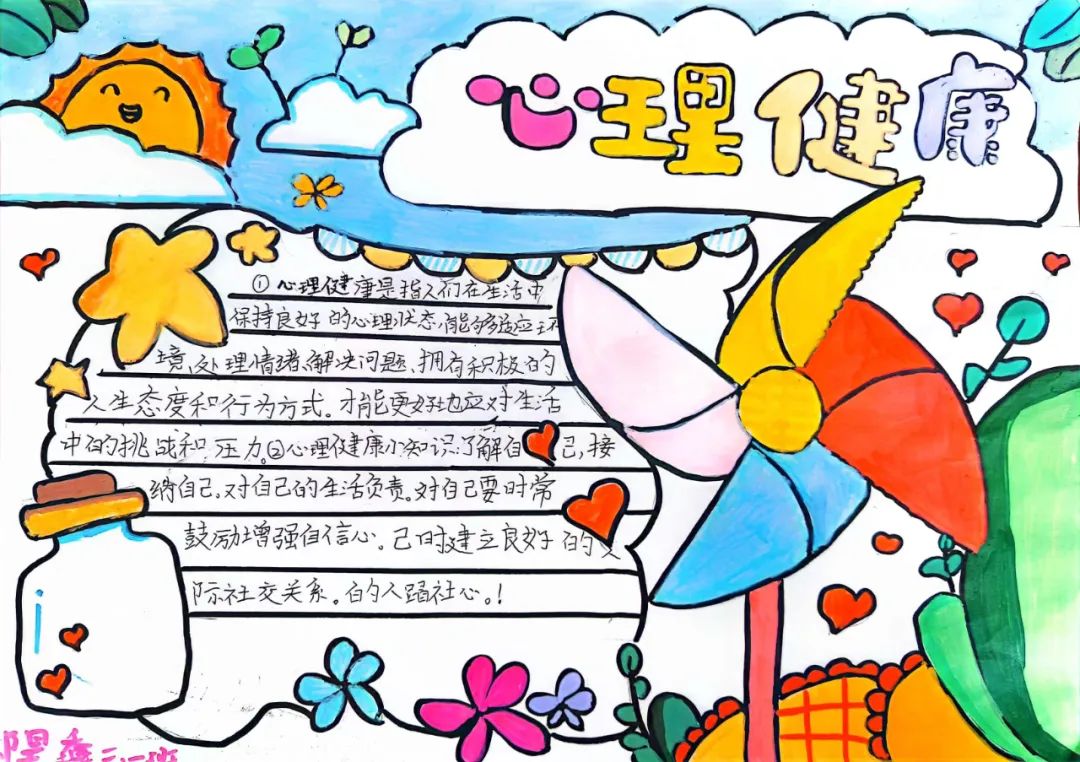 心理健康
①心理健康是指人们在生活中
保持良好的心理状态,能够适应环
境、处理情绪、解决问题、拥有积极的
人生态度和行为方式。才能更好地应对生活
中的挑战和压力。②心理健康小知识:了解自己,接
纳自己。对自己的生活负责。对自己要时常
鼓励增强自信心。己时建立良好的
际社交关系。的人踏社心。!
二一班